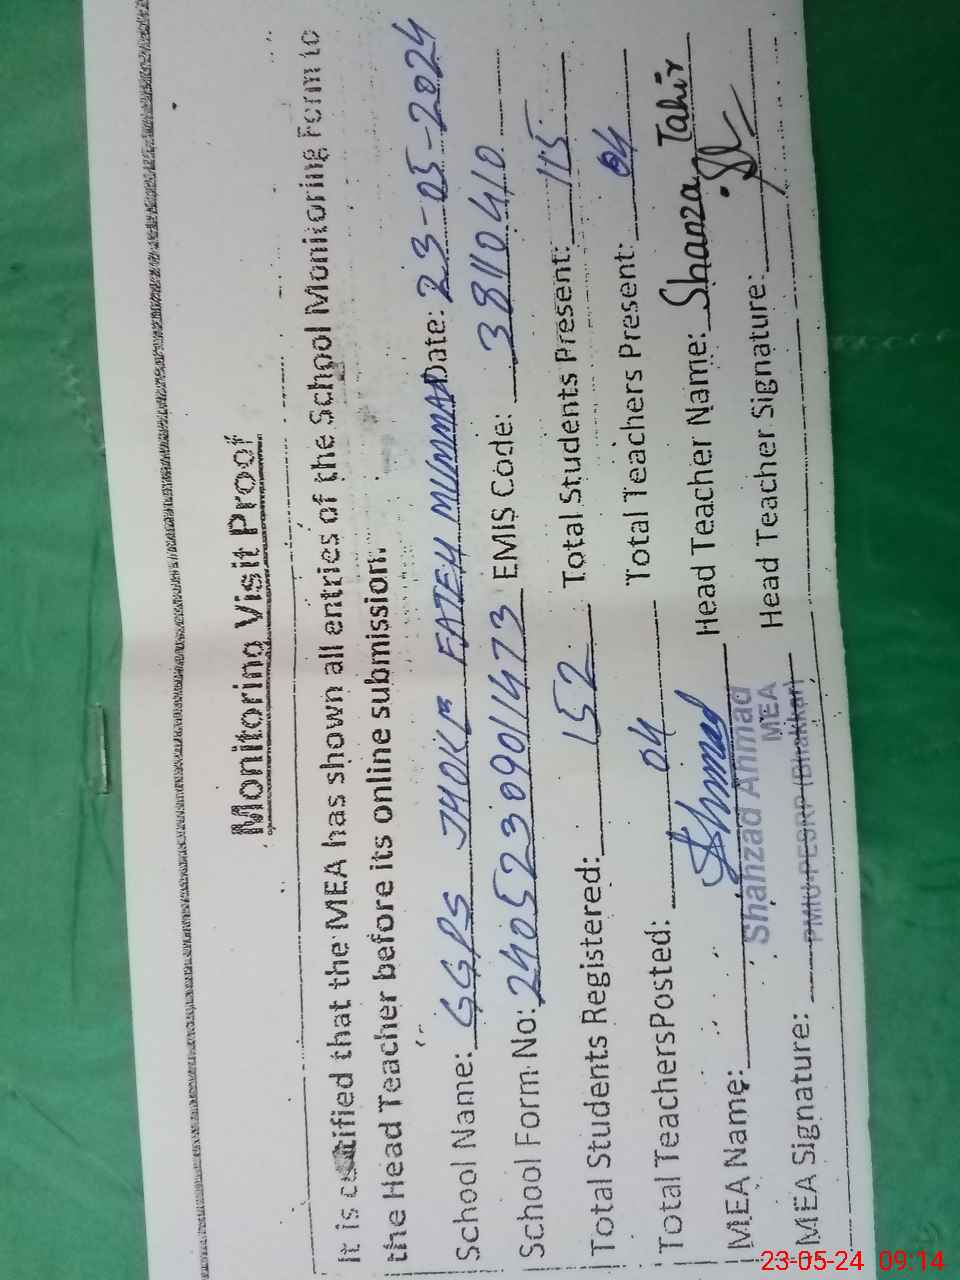 Monitoring Visit Proof
It is certified that the MEA has shown all entries of the School Monitoring Form to
the Head Teacher before its online submission.
School Name: GGPS JHOKE FATEH MUMMAD Date: 23-05-2024
School Form No: 24052309011473 EMIS Code: 38110410
Total Students Registered: 152 Total Students Present: 115
Total Teachers Posted: 04 Total Teachers Present: 04
MEA Name: Ahmad Head Teacher Name: Shanza Tahir
Shahzad Ahmad
MEA
PMIU-PESRP (Bhakkar)
MEA Signature: Head Teacher Signature:
23-05-24 09:14